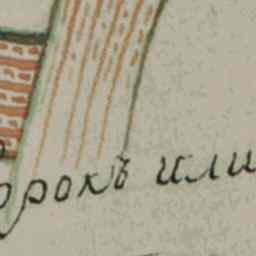 орокъ или